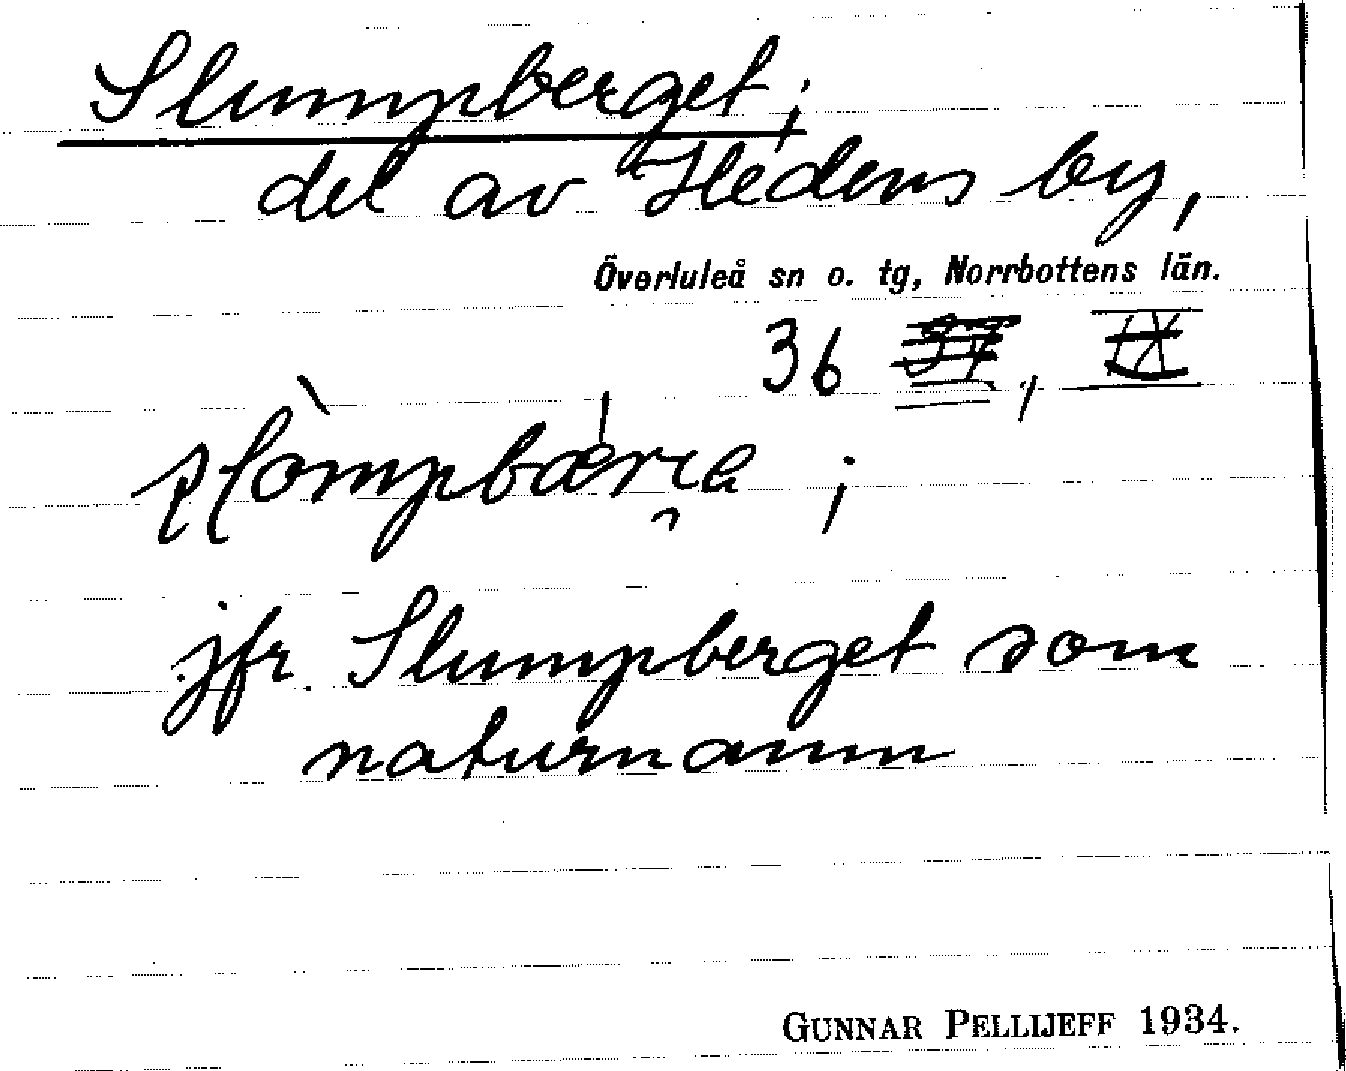 Slumpberget;
del av Hedens by,
Överluleå sn o. tg, Norrbottens län.
36
jfr. Slumpberget som
naturnamn
GUNNAR PELLIJEFF 1934.